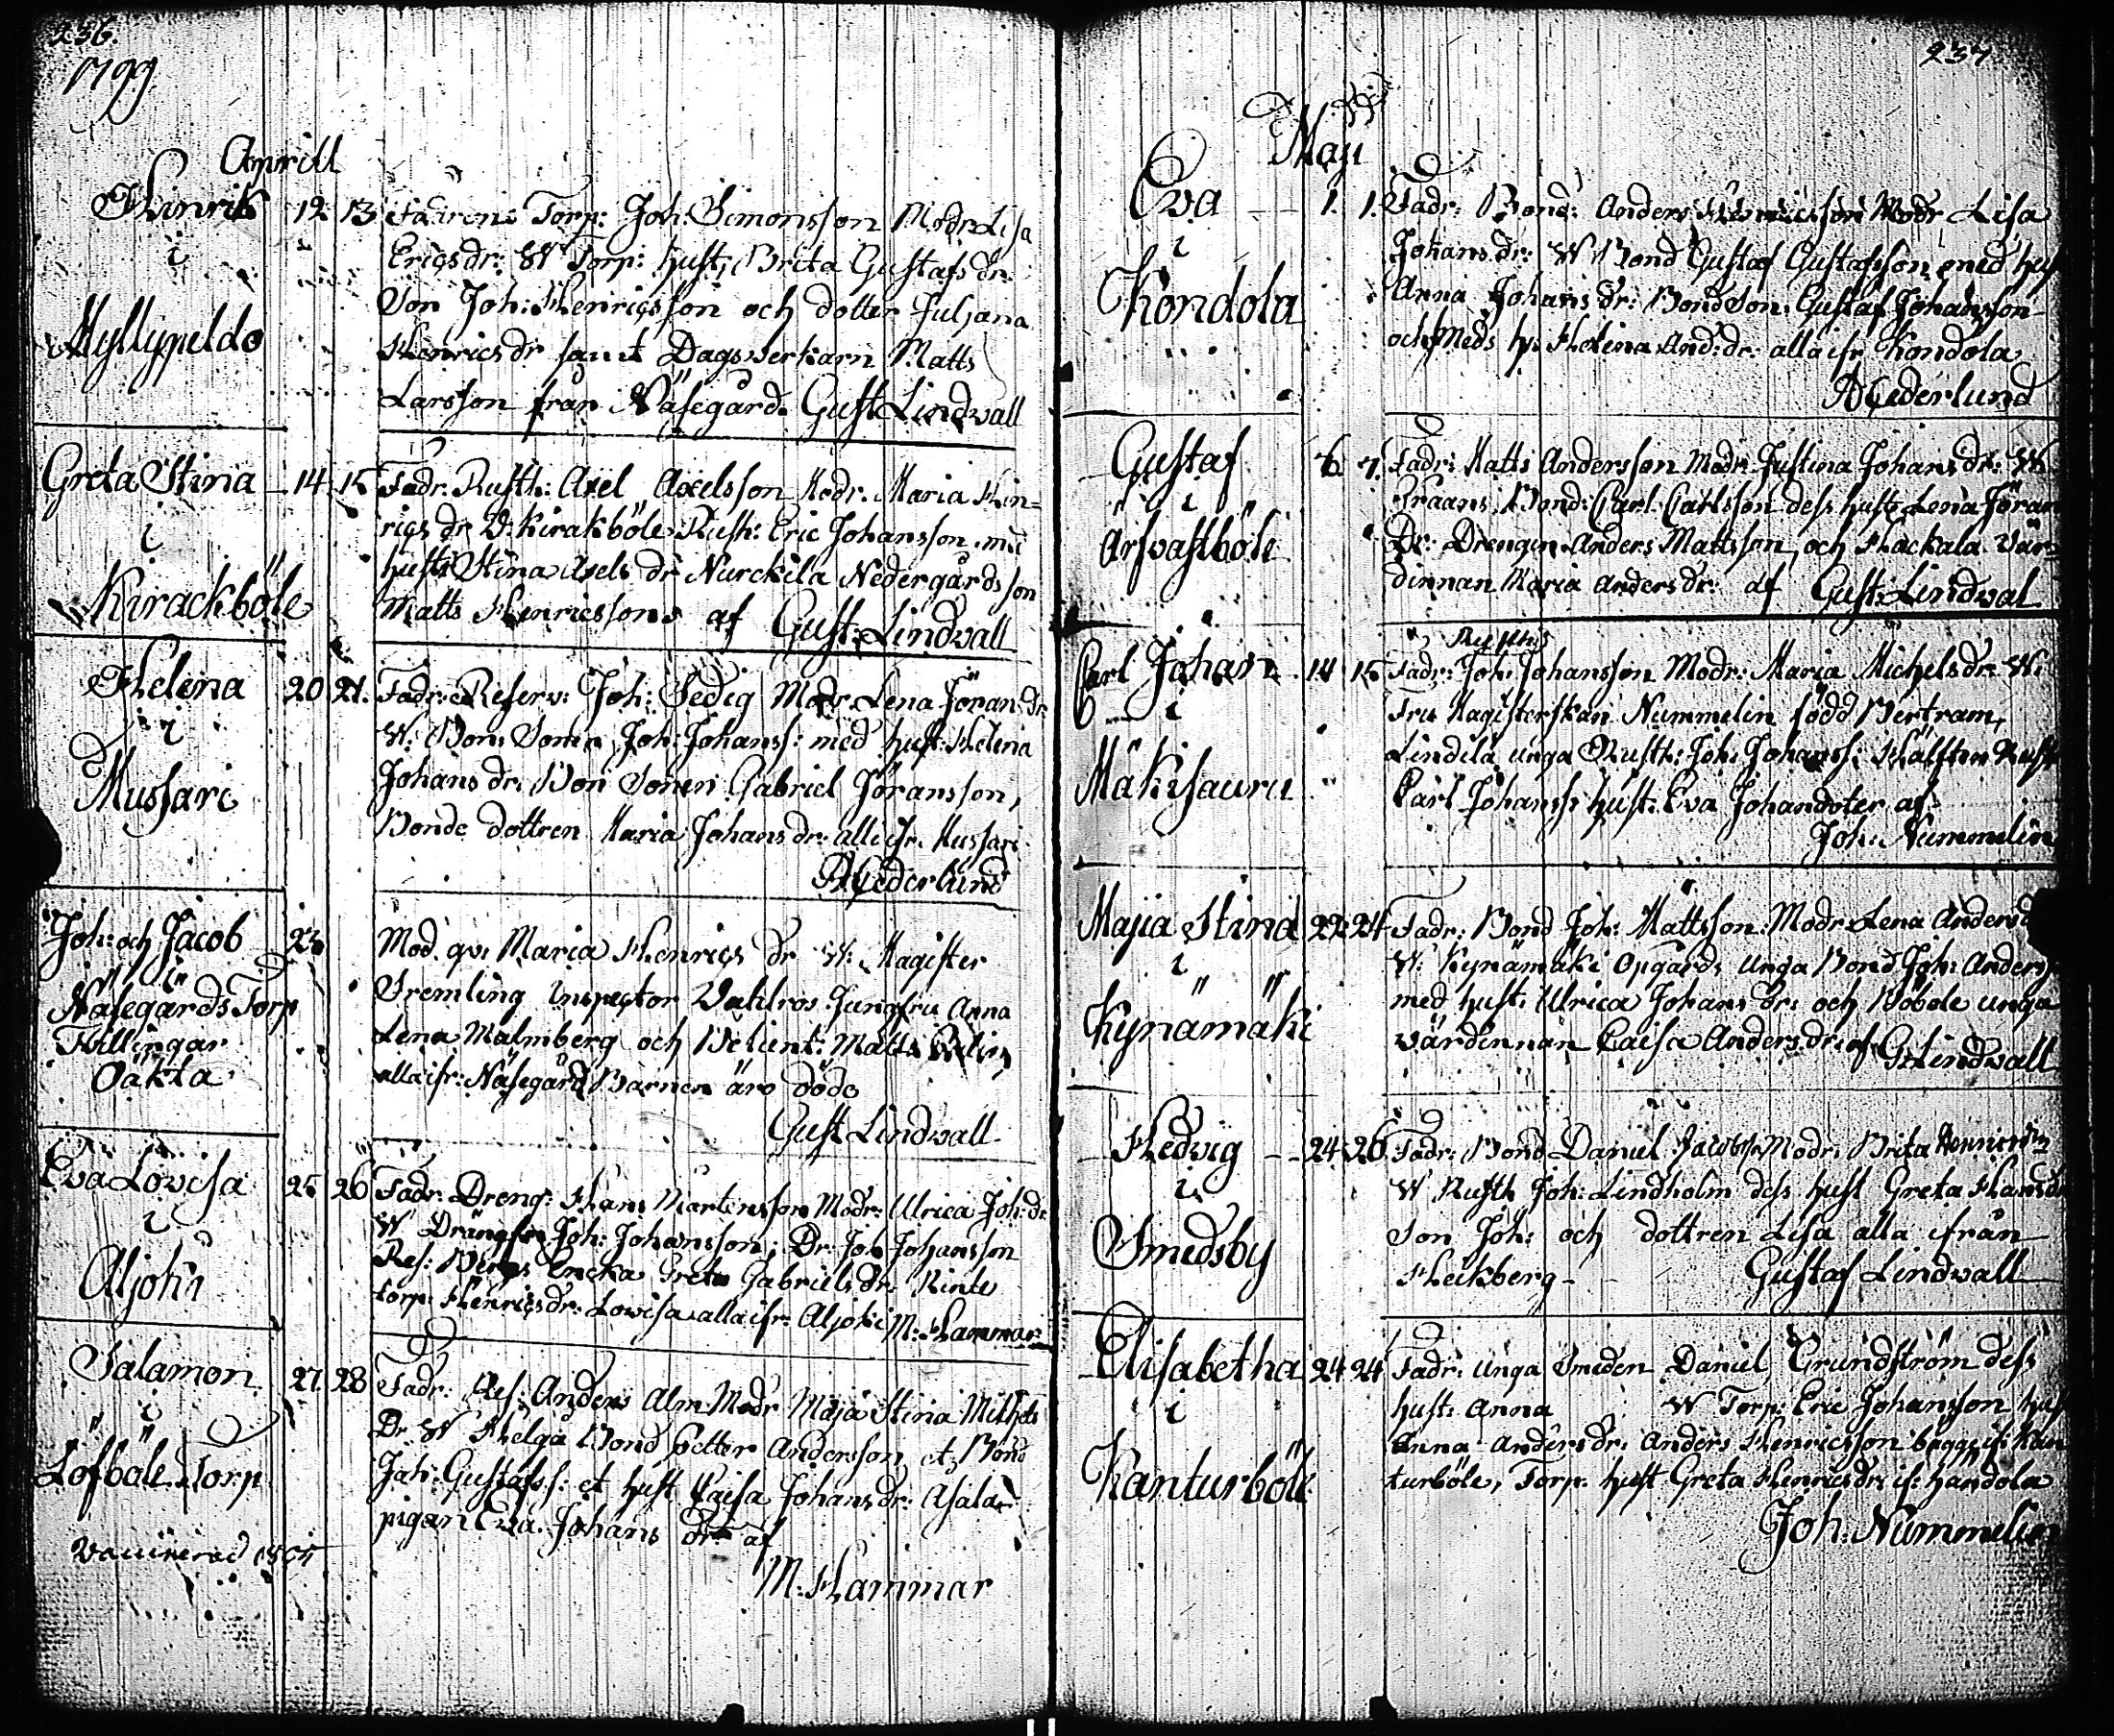 236.
1799
Aprill
Hinrik 12 13 Fadrens Torp: Joh: Simonsson Modr Lisa
i Ericsdr: W Torp: hust, Brita Gustafs dr:
Son Joh: Henricsson och dotter Juljana
Myllypeldo Henrics dr samt Dagsverkarn Matts
Larsson från Näsegård. Gust Lindvall
Greta Stina 14 15 Fadr. Rusth: Axel Axelsson Modr. Maria Hin=
rics dr W: Kirakböle Rusth: Eric Johansson. md
i hust: Stina Axels dr Nurckila Nedergårds son
Kirackböle Matts Henricssons af Gust: Lindvall
Helena 20 21. Fadr: Reserv: Joh: Sedig Modr Lena Jöransdr
i W: Bon: Sonen Joh: Johanss: med hust: Helena
Mussari Johans dr: Bon Sonen Gabriel Jöransson,
Bonde dottren Maria Johans dr: alla ifr. Mussari
A Cederlund
Joh: och Jacob 23 Mod. qv: Maria Henrics dr W: Magister
i Fremling Inspector Dahlros Jungfru Anna
Näsegårds Torp Lena Malmberg och Betient: Matts
Tillingar alla ifr: Näsegård Barnen äro döde
Oäkta
Gust Lindvall
Eva Lovisa 25 26 Fadr. Dreng: Hans Martensson Modr: Ulrica Joh: dr
i W Joh: Johansson; Dr: Joh Johansson
Res: Bergs Encka Greta Gabriels dr:
Aljoki torp: Henricsdr: Lovisa alla ifr: Aljoki M: Hammar
Salamon 27 28 Fadr: Res: Anders Alm Modr Maja Stina Mikels
i Dr W Helga Bond Petter Andersson et Bond
Löfböle Torp Joh: Gustafss: et hust Caisa Johans dr: Asala
pigan Eva Johans dr: af
Vaccinerad
M: Hammar
237
Maji
Eva 1. 1. Fadr: Bond: Anders Henricsson Modr Lisa
i Johans dr: W Bond Gustaf Gustafsson med hust
Kondola Anna Johans dr: Bond Son: Gustaf Johansson
och Helena And: dr: alla ifr Kondola
A Cederlund
Gustaf 6 7. Fadr: Matts Andersson Modr: Justina Johans dr: W
i Bond: Carl Carlsson dess hust: Lena Jöran
Arsvastböle Dr: Drengen Anders Mattsson, och Hackala Vär=
dinnan Maria Anders dr: af Gust: Lindval
Rusth:
Carl Johan 14 15 Fadr: Joh: Johansson Modr: Maria Michels dr: W:
i Fru Magisterskan Nummelin född Bertram,
Mäkisauru Lindila unga Rusth: Joh: Johanss: Hälften Rusth
Carl Johanss: hust: Eva Johandoter af
Joh: Nummelin
Majia Stina 22 24 Fadr: Bond Joh: Mattsson: Modr: Lena Andersd
i W: Kynämäki Opgårds Unga Bond Joh: Anderss
Kynämäki med hust: Ulrica Johans dr: och Böbole unga
värdinnan Caisa Anders dr: af G Lindvall
Hedvig 24 26 Fadr: Bond Daniel Jacobss. Modr. Brita Henricsdr
i W Rusth Joh: Lindholm dess hust Greta Hansd
Smedsby Son Joh: och dottren Lisa alla ifrån
Heikberg Gustaf Lindvall
Elisabetha 24 24 Fadr: unga Smeden Daniel Grundström dess
i hust: Anna W Torp: Eric Johansson hust
Anna Anders dr: Anders Henricsson bägge if: Kan
Kanturböle turböle, Torp. hust Greta Henricsdr: if: Handola
Joh: Nummelin